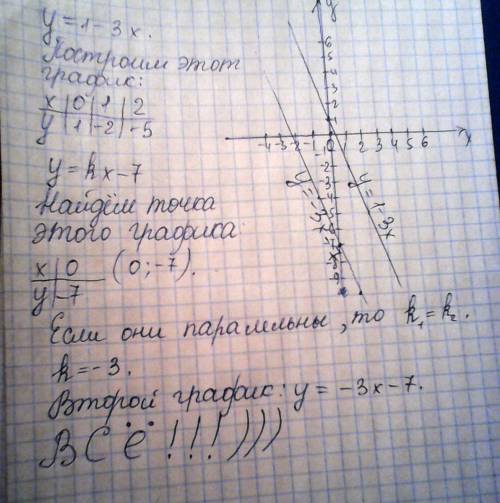 y = 1 - 3x.
Построим этот
график:
x | 0 | 1 | 2
y | 1 | -2 | -5
y = kx - 7
Найдём точка
этого графика
x | 0 (0; -7).
y | -7
Если они паралельны, то k₁ = k₂.
k = -3.
Второй график: y = -3x - 7.
ВСЁ!!!)))
y
6
5
4
3
2
1
-4 -3 -2 -1 0 1 2 3 4 5 6 x
-1
-2
-3
-4
-5
-7
-8
-9
y = 1 - 3x